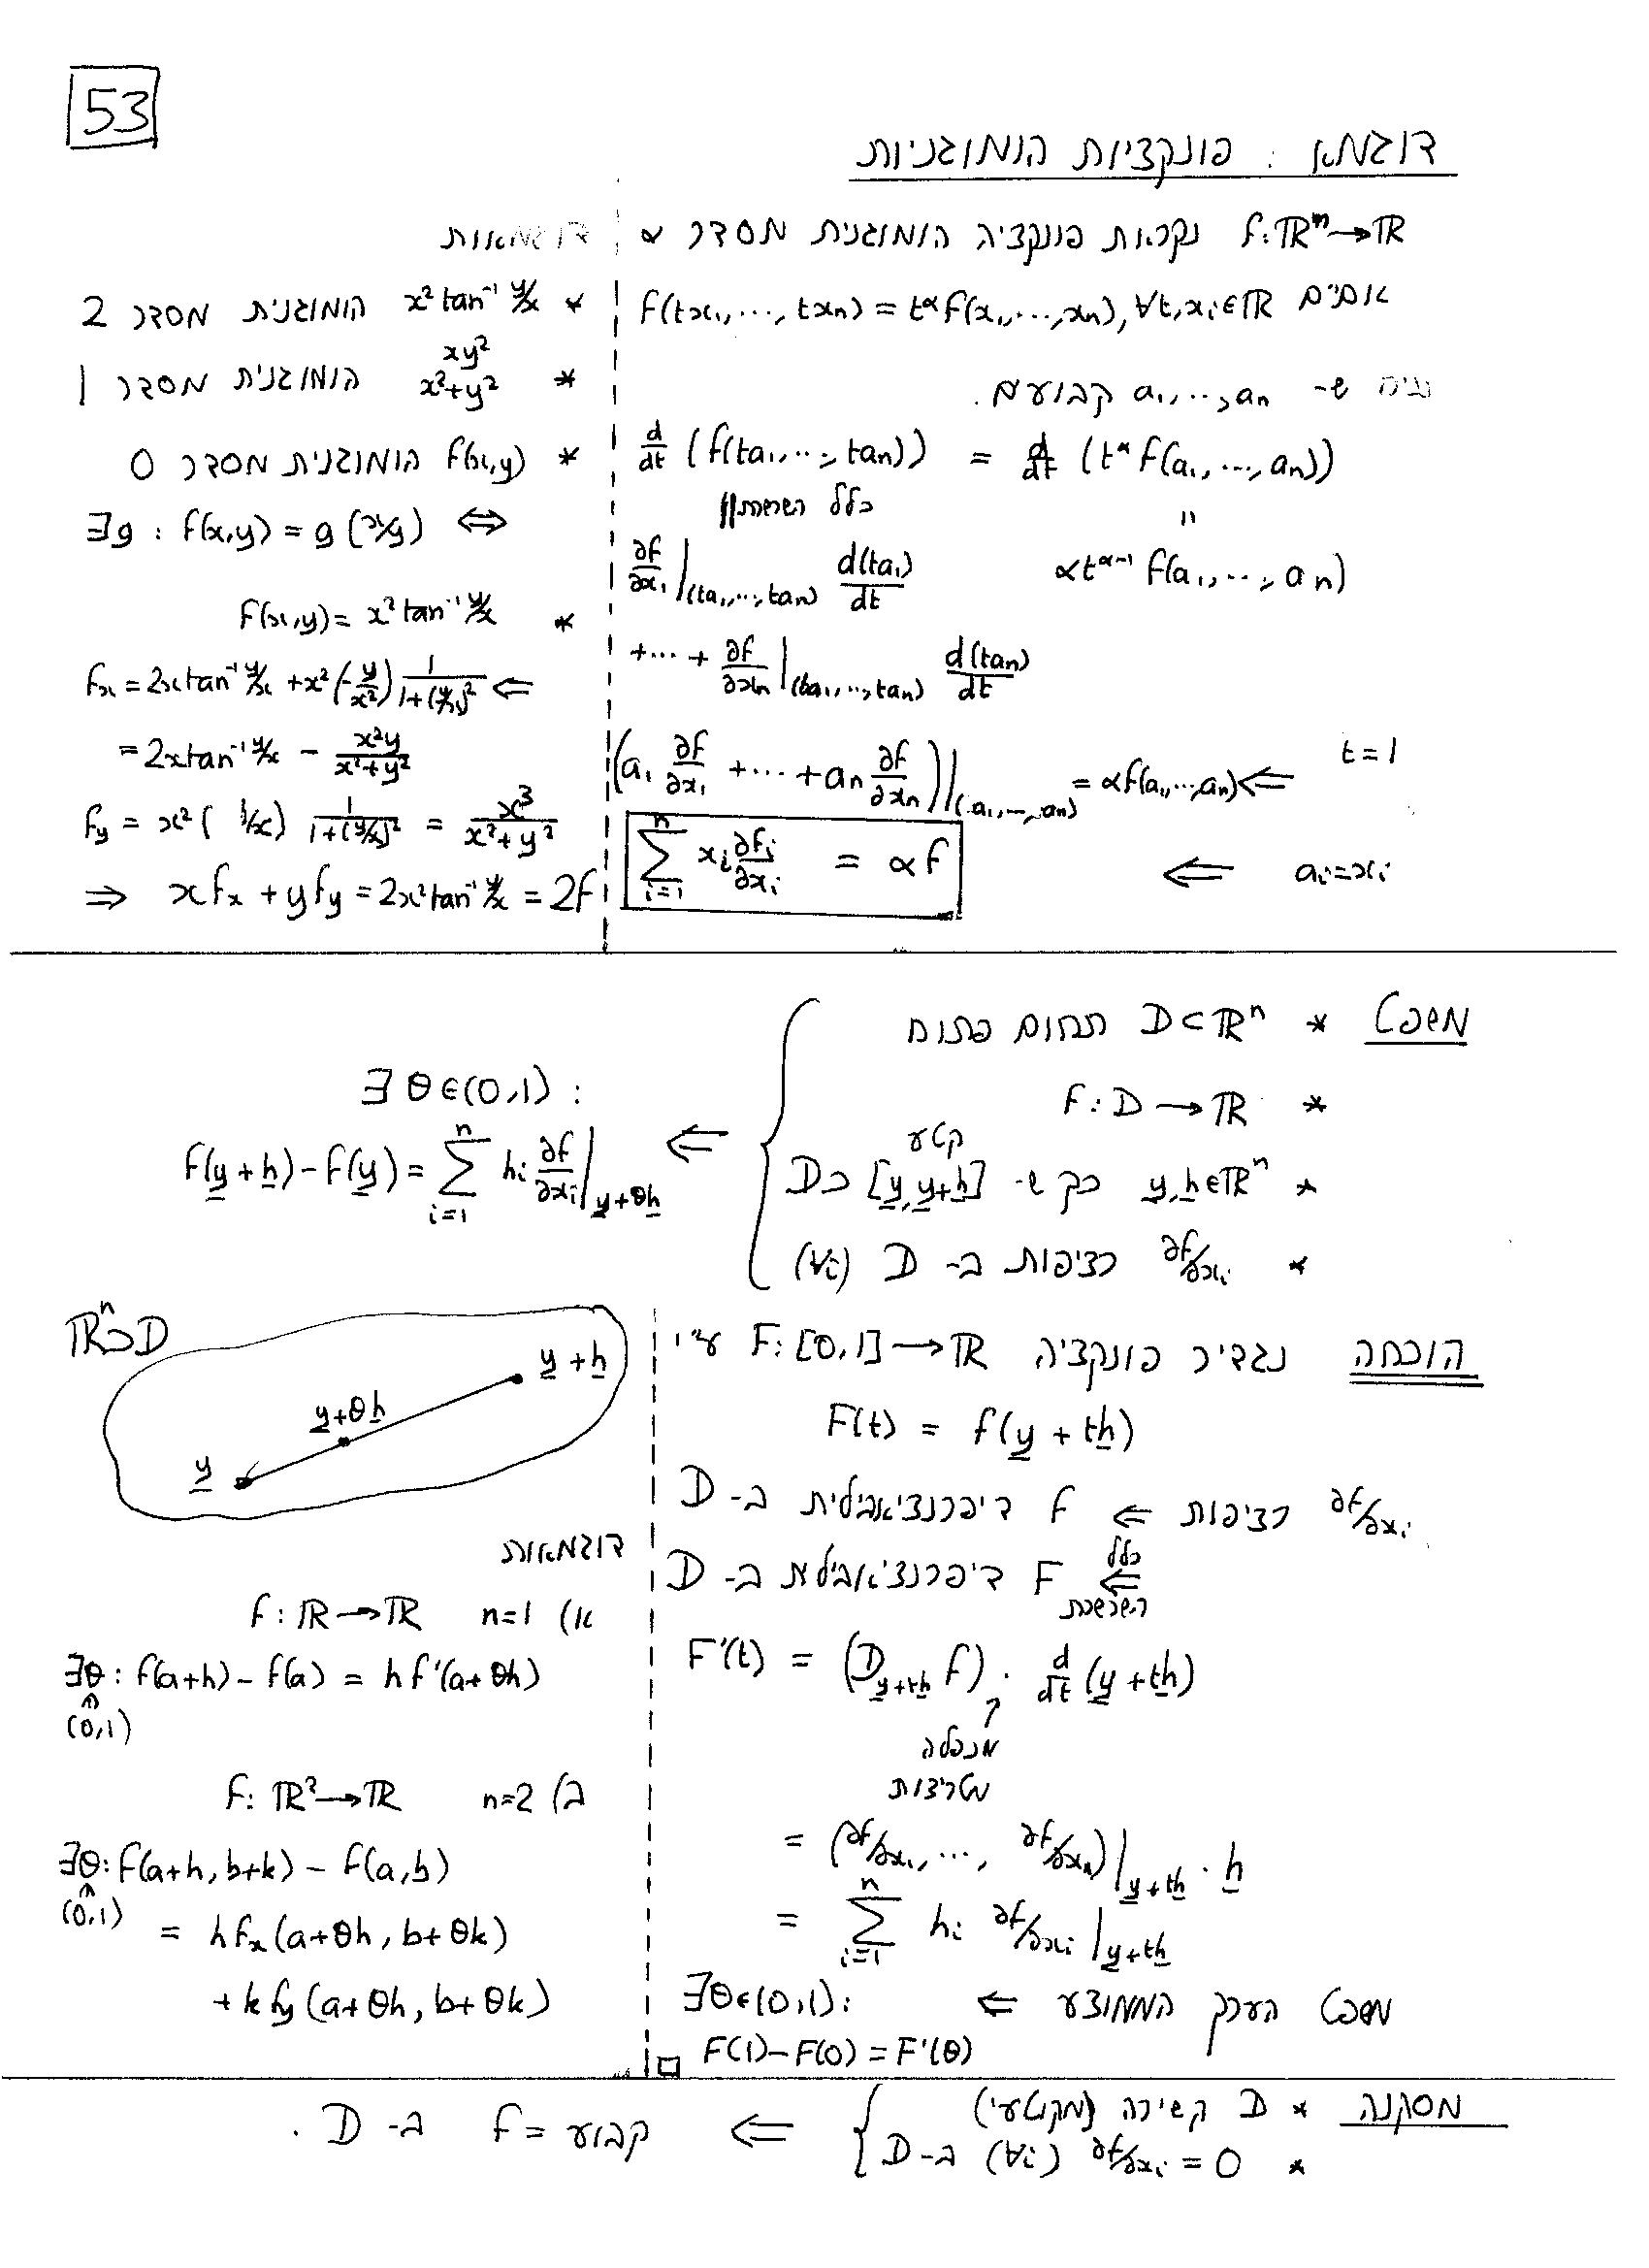 53
דוגמא : פונקציות הומוגניות
f:ℝⁿ→ℝ נקראת פונקציה הומוגנית מסדר α
אםים f(tx₁,…,txₙ) = t^α f(x₁,…,xₙ), ∀t,xᵢ∈ℝ
נניח ש- a₁,…,aₙ קבועים.
d/dt (f(ta₁,…,taₙ)) = d/dt (t^α f(a₁,…,aₙ))
כלל השרשרת || "
∂f/∂x₁ |(ta₁,…,taₙ) d(ta₁)/dt αt^(α-1) f(a₁,…,aₙ)
+…+ ∂f/∂xₙ |(ta₁,…,taₙ) d(taₙ)/dt
t=1
(a₁ ∂f/∂x₁ +…+ aₙ ∂f/∂xₙ)|(a₁,…,aₙ) = αf(a₁,…,aₙ) ⇐
aᵢ=xᵢ ⇐
∑ᵢ₌₁ⁿ xᵢ ∂fᵢ/∂xᵢ = αf
דוגמאות
* x² tan⁻¹ y/x הומוגנית מסדר 2
* xy²/x²+y² הומוגנית מסדר 1
* f(x,y) הומוגנית מסדר 0
∃g : f(x,y) = g(x/y) ⇔
* f(x,y) = x² tan⁻¹ y/x
fₓ = 2x tan⁻¹ y/x + x²(-y/x²) 1/1+(y/x)² ⇐
= 2x tan⁻¹ y/x - x²y/x²+y²
f_y = x²(1/x) 1/1+(y/x)² = x³/x²+y²
⇒ xfₓ + yf_y = 2x² tan⁻¹ y/x = 2f
משפט * D⊂ℝⁿ תחום פתוח
* f:D→ℝ
קטע
* y,h∈ℝⁿ כך ש- [y,y+h] ⊂D
* ∂f/∂xᵢ רציפות ב- D (∀i)
⇐
∃θ∈(0,1) :
f(y+h)-f(y) = ∑ᵢ₌₁ⁿ hᵢ ∂f/∂xᵢ |y+θh
הוכחה נגדיר פונקציה F:[0,1]→ℝ ע"י
F(t) = f(y+th)
∂f/∂xᵢ רציפות ⇐ f דיפרנציאבילית ב- D
כלל
⇐ F דיפרנציאבילית ב- D
השרשרת
F'(t) = (D_{y+th} f) · d/dt (y+th)
מכפלה
מטריצות
= (∂f/∂x₁,…, ∂f/∂xₙ)|y+th · h
= ∑ᵢ₌₁ⁿ hᵢ ∂f/∂xᵢ |y+th
משפט הערך הממוצע ⇐ ∃θ∈(0,1):
F(1)-F(0) = F'(θ) □
ℝⁿ⊃D
y+h
y+θh
y
דוגמאות
א) n=1 f:ℝ→ℝ
∃θ: f(a+h)-f(a) = hf'(a+θh)
(0,1)
ב) n=2 f:ℝ²→ℝ
∃θ: f(a+h,b+k)-f(a,b)
(0,1)
= hfₓ(a+θh,b+θk)
+kf_y(a+θh,b+θk)
מסקנה * D קשירה (מקוטעי)
* ∂f/∂xᵢ = 0 (∀i) ב- D
⇐ קבוע = f ב- D .